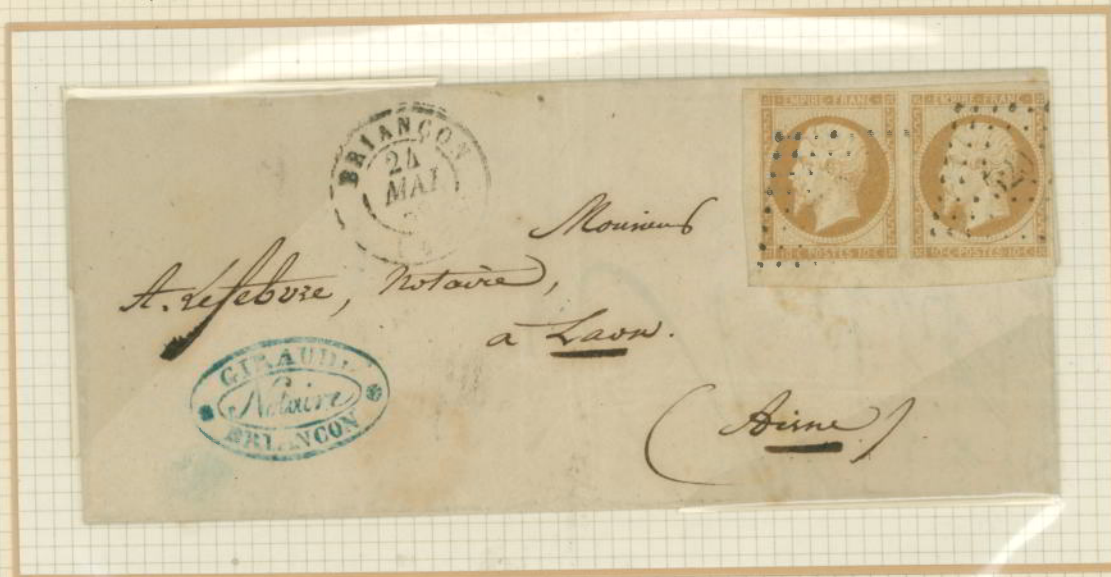 BRIANÇON
24
MAI
EMPIRE FRANC
10·C POSTES 10·C
EMPIRE FRANC
10·C POSTES 10·C
Monsieur
A. Lefebvre, Notaire,
à Laon.
(Aisne)
GIRAUD
Notaire
BRIANCON